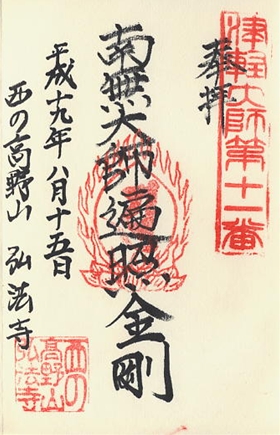 津軽大師第十一番
奉拝
南無大師遍照金剛
平成十九年八月十五日
西の高野山 弘法寺
西の
高野山
弘法寺